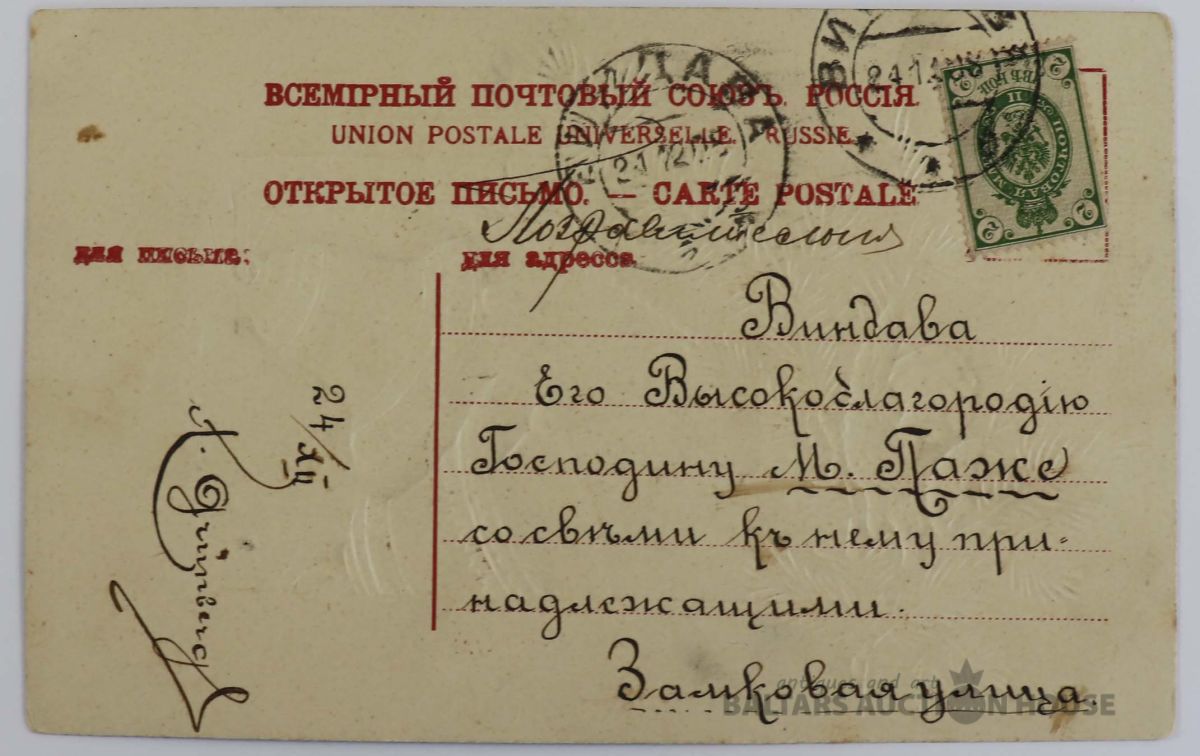 ВСЕМІРНЫЙ ПОЧТОВЫЙ СОЮЗЪ. РОССІЯ.
UNION POSTALE UNIVERSELLE. RUSSIE.
ОТКРЫТОЕ ПИСЬМО. — CARTE POSTALE
для письма:
для адресса
Виндава
Его Высокоблагородію
Господину М. Паже
со свѣми къ нему при-
надлежащими.
Замковая улица.
24/XII
A. Grünberg
ВИНДАВА
24 12
2
antiques and art
BALTARS AUCTION HOUSE